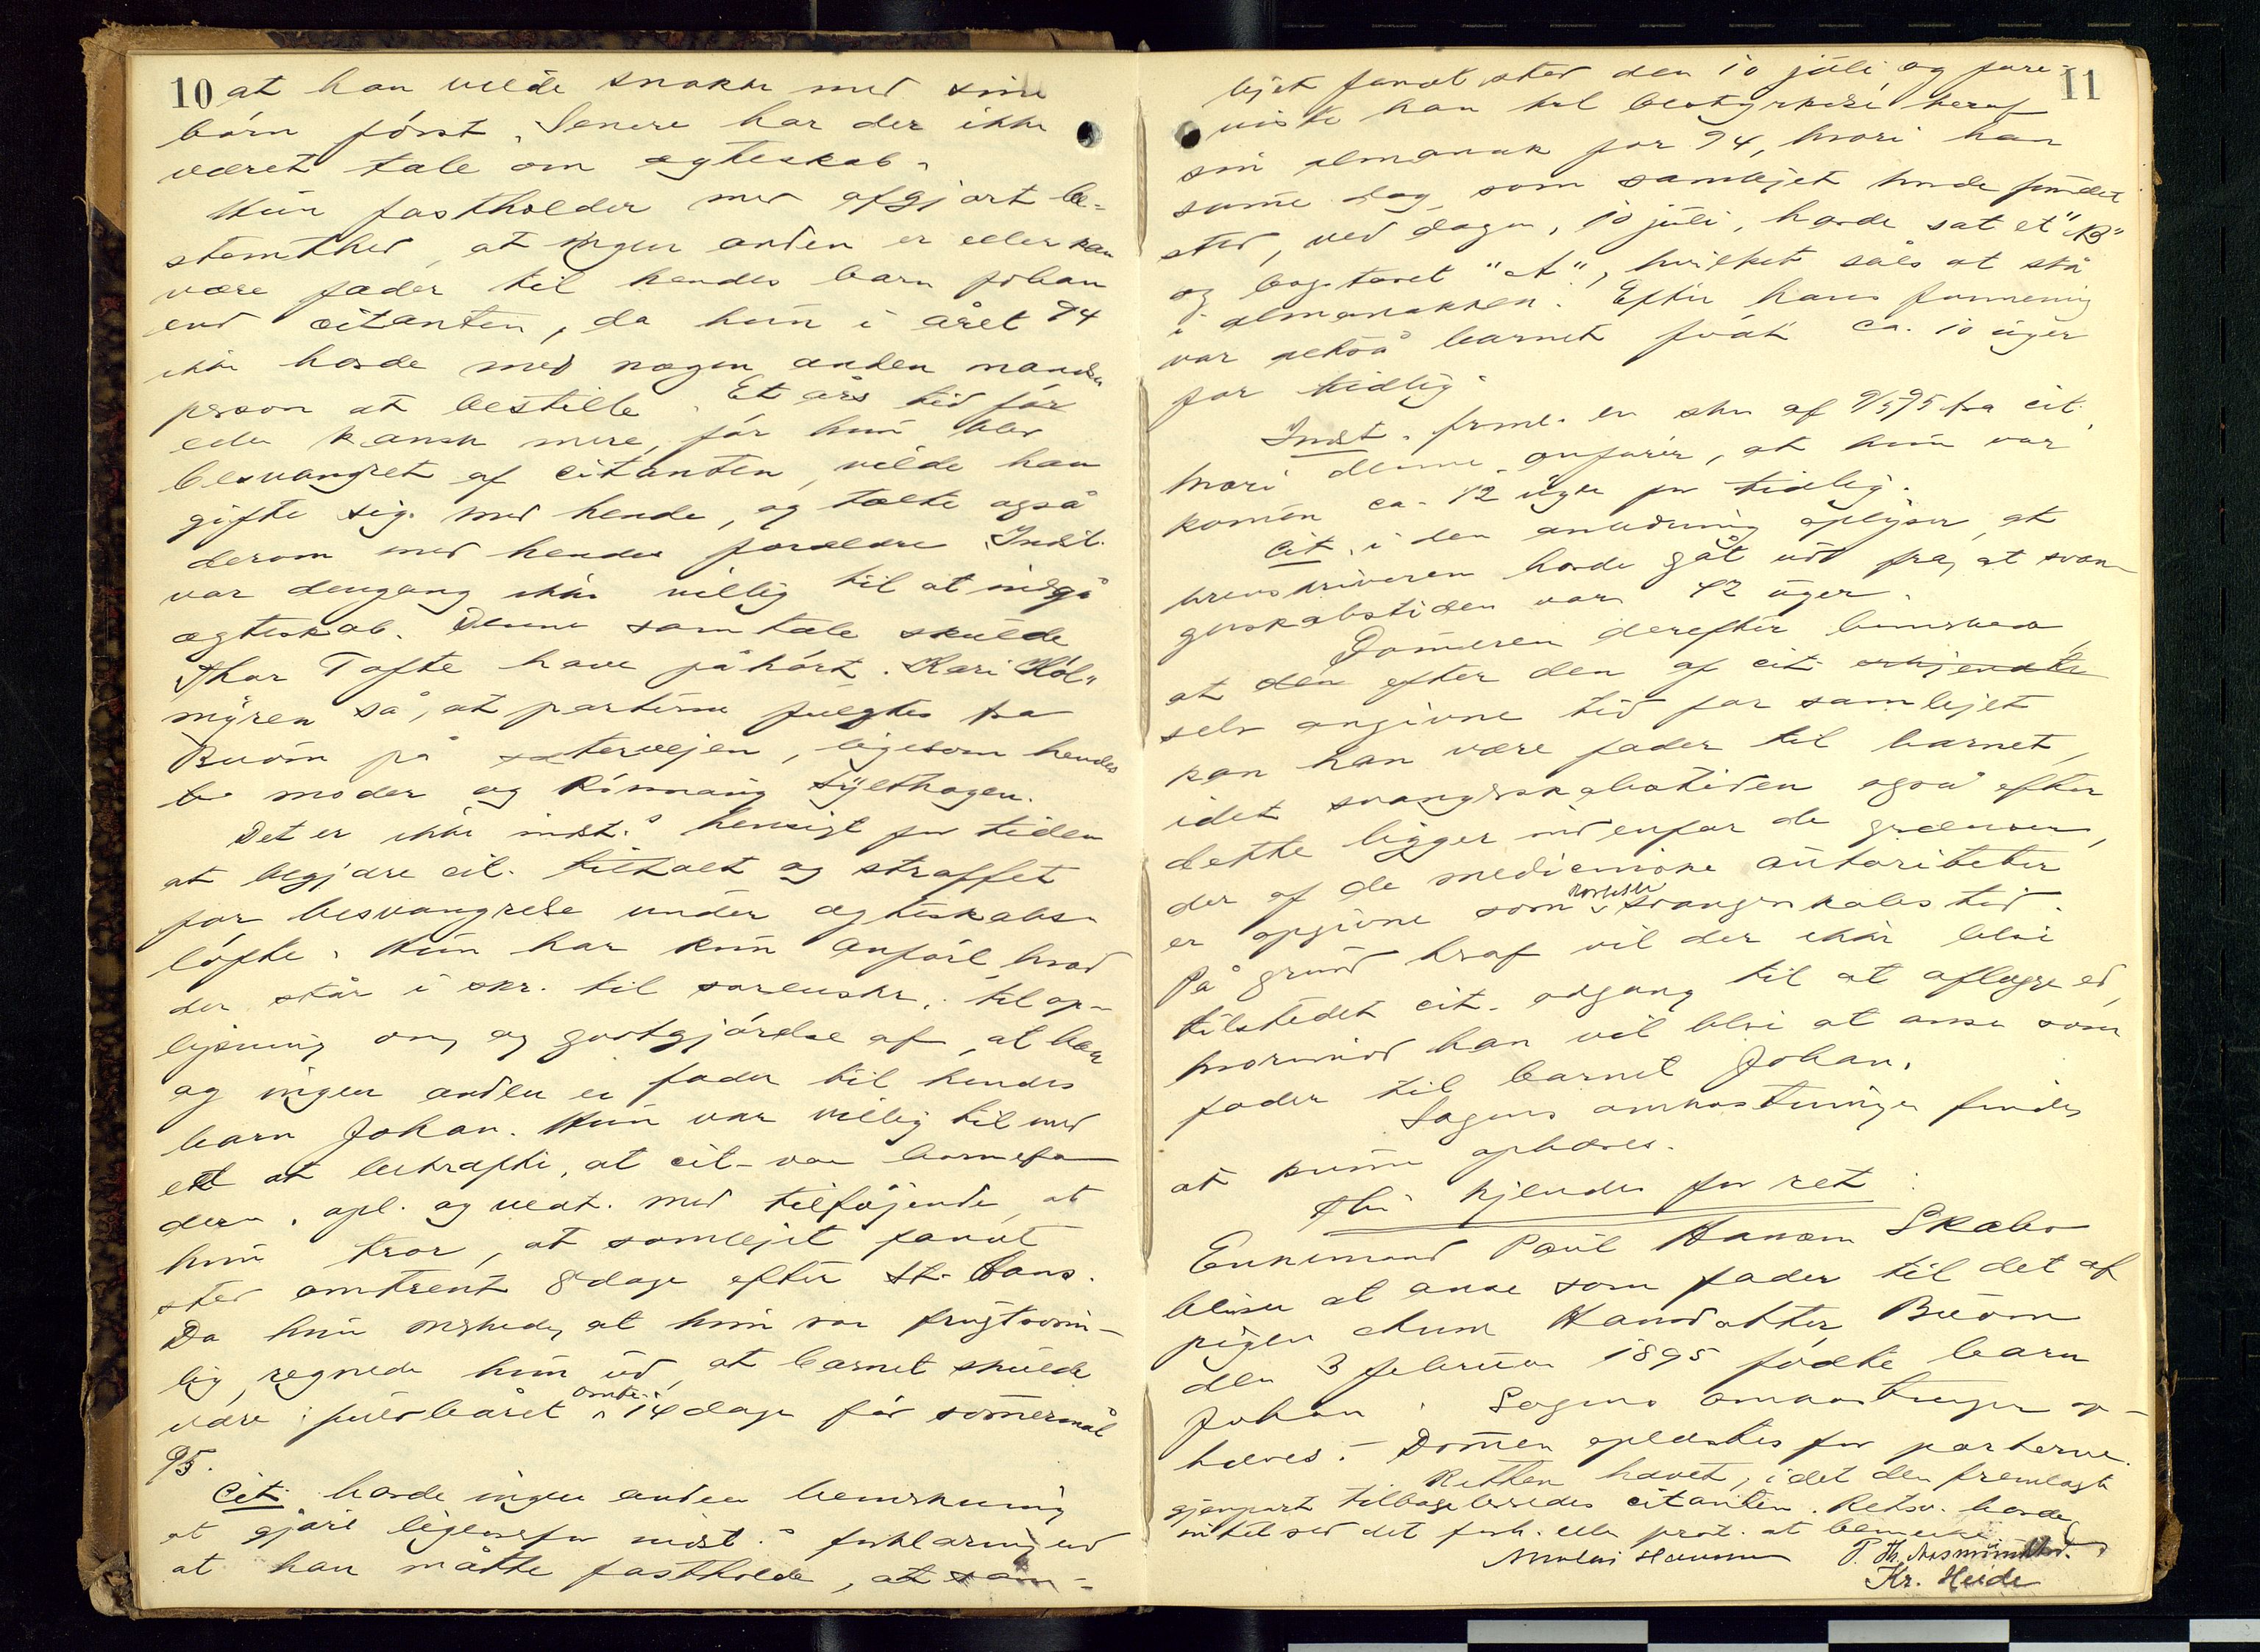 10 at han vilde snakke med sine
börn först. Senere har der ikke
været tale om ægteskab.
Hun fastholder med afgjort be-
stemthed, at ingen anden er eller kan
være fader til hendes barn Johan
end citanten, da hun i året 94
ikke havde med nogen anden mands
person at bestille. Et års tid för
eller kanske mere, för hun blev
besvangret af citanten, vilde han
gifte sig med hende, og talte også
derom med hendes forældre. Indst.
var dengang ikke villig til at indgå
ægteskab. Denne samtale skulde
Thor Tofte have påhört. Kari Höl-
myren så, at parterne fulgtes fra
Buöm på sætervejen, ligesom hendes
moder og Rönnaug Sylthagen.
Det er ikke indst.s hensigt for tiden
at begjære cit. tiltalt og straffet
for besvangrelse under ægteskabs-
löfte. Hun har kun anfört, hvad
der står i skr. til sorenskr. til op-
lysning om, og godtgjörelse af, at han
og ingen anden er fader til hendes
barn Johan. Hun var villig til med
ed at bekræfte, at cit. var barnefa-
deren. Opl. og vedt. med tilföjende, at
hun tror, at samlejet fandt
sted omtrent 8 dage efter St. Hans.
Da hun mærkede, at hun var frugtsom-
lig, regnede hun ud, at barnet skulde
være fuldbåret omtr. 14 dage för sommermål
95.
Cit. havde ingen anden bemærkning
at gjöre ligeoverfor indst.s forklaring end
at han måtte fastholde, at sam-
11
lejet fandt sted den 10 juli, og fore-
viste han til bestyrkelse heraf
sin almanak for 94, hvori han
samme dag, som samlejet havde fundet
sted, ved dagen, 10 juli, havde sat et "B"
og bogstavet "A", hvilket såes at stå
i almanakken. Efter hans formening
var altså barnet födt ca. 10 uger
for tidlig.
Indst. freml. en skr. af 9/5 95 fra cit.
hvori denne anförer, at hun var
kommen ca. 12 uger for tidlig.
Cit. i den anledning oplyser, at
brevskriveren havde gåt ud fra, at svan-
gerskabstiden var 42 uger.
Domeren derefter bemærked,
at den efter den af cit.
selv angivne tid for samlejet
kan han være fader til barnet,
idet svangerskabstiden også efter
dette ligger indenfor de grænser,
der af de medicinske autoriteter
er opgivne som svangerskabstid.
På grund heraf vil der ikke blive
tilstedet cit. adgang til at aflægge ed,
hvorimod han vil blive at anse som
fader til barnet Johan.
Sagens omkostninger findes
at kunne ophæves.
Thi kjendes for ret:
Enkemand Paul Hansen Skabo
bliver at anse som fader til det af
pigen Anne Hansdatter Buöm
den 3 februar 1895 födte barn
Johan. Sagens omkostninger op-
hæves. – Dommen oplæstes for parterne.
Retten hævet, idet den fremlagte
gjenpart tilbageleveredes citanten. Retsv. havde
intet ved det forh. eller prot. at bemærke.
P. Th. Aasmundstad.
Kr. Heide